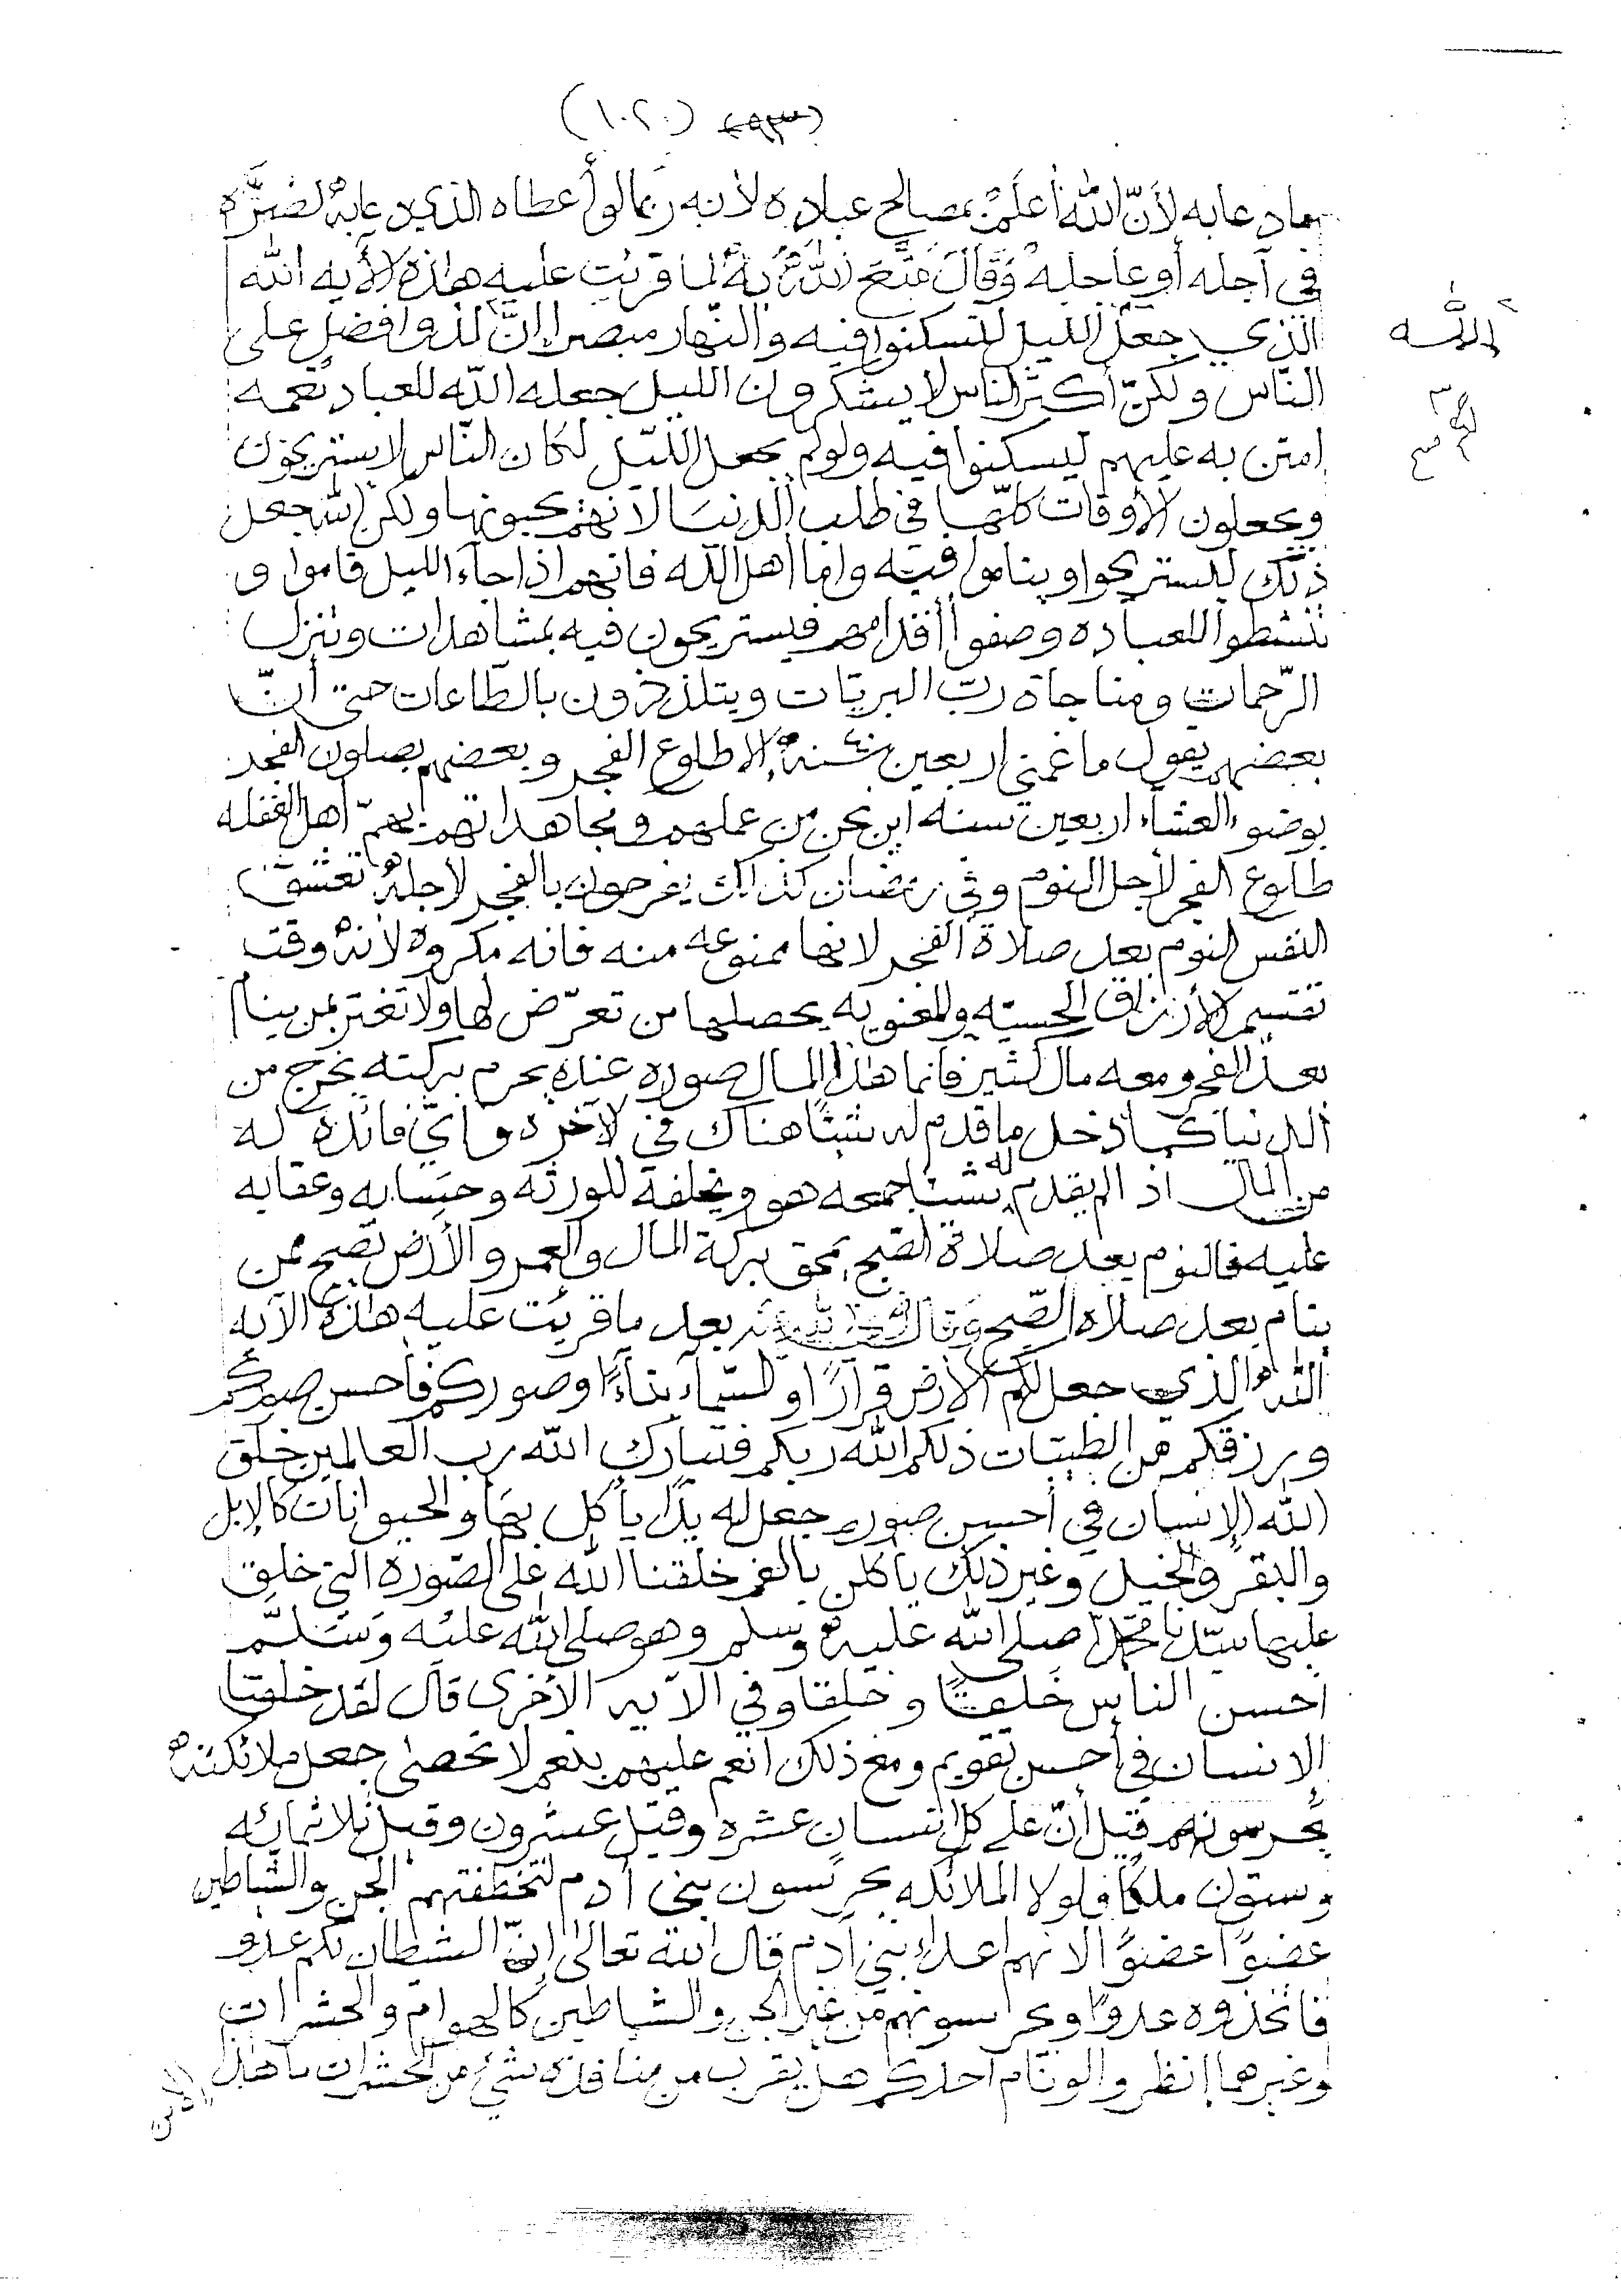 (١٠٢)
بما دعا به لأنّ الله أعلم بمصالح عباده لأنه ربما لو أعطاه الذي دعا به لضرّه
في آجله أو عاجله وقال متّع الله به لما قرئت عليه هذه الأيه الله
الذي جعل الليل لتسكنوا فيه والنّهار مبصرا إنّ الله لذو افضل على
النّاس ولكنّ أكثر الناس لا يشكرون الليل جعله الله للعباد نعمه
امتن به عليهم ليسكنوا فيه ولو لم يجعل اللّيل لكان النّاس لا يستريحون
ويجعلون الأوقات كلّها في طلب الدنيا لأنهم يحبونها ولكن الله جعل
ذلك ليستريحوا ويناموا فيه واما أهل الله فانهم اذا جاء الليل قاموا و
تنشطوا للعباده وصفوا أقدامهم فيستريحون فيه بمشاهدات وتنزل
الرّحمات ومناجاة ربّ البريّات ويتلذذون بالطّاعات حتى أنّ
بعضهم يقول ما غمني اربعين سنة إلا طلوع الفجر وبعضهم يصلون الفجر
بوضوء العشاء اربعين سنه اين نحن من عملهم ومجاهداتهم يهمّ أهل الغفله
طلوع الفجر لأجل النوم وفي رمضان كذلك يفرحون بالفجر لأجله تعشق
النفس النوم بعد صلاة الفجر لانها ممنوعه منه فانه مكروه لأنه وقت
تقسيم الأرزاق الحسيّه والمعنويه يحصلها من تعرّض لها ولا تغتر بمن ينام
بعد الفجر ومعه مال كثير فانما هذا المال صوره عناه يحرم بركته يخرج من
الدنيا كما دخل ما قدم له شيئا هناك في لآخره وايّ فائده له
من المال اذا لم يقدم له شيئا جمعه هو ويخلفه للورثه وحسابه وعقابه
عليه فالنوم بعد صلاة الصّبح يمحق بركة المال والعمر والأرض تضج ممن
ينام بعد صلاة الصّبح وقال بعد ما قرئت عليه هذه الآيه
الله الذي جعل لكم الأرض قرارًا والسّماء بناءً وصوركم فأحسن صوركم
ورزقكم من الطيبات ذلكم الله ربكم فتبارك الله رب العالمين خلق
الله الإنسان في أحسن صوره جعل له يدًا يأكل بها والحيوانات كالإبل
والبقر والخيل وغير ذلك يأكلن بالفم خلقنا الله على الصّوره التي خلق
عليها سيّدنا محمّدًا صلى الله عليه وسلم وهو صلى الله عليه وسلّم
احسن الناس خَلقًا وخلقا وفي الآيه الأخرى قال لقد خلقنا
الإنسان في أحسن تقويم ومع ذلك انعم عليهم بنعم لا تحصى جعل ملائكته
يحرسونهم قيل أنّ على كل انسان عشره وقيل عشرون وقيل ثلاثمائه
وستون ملكًا فلولا الملائكه يحرسون بني أدم لتخطفتهم الجن والشياطين
عضوًا عضوًا لانهم اعداء بني آدم قال الله تعالى إنّ الشيطان لكم عدو
فاتخذوه عدوًا ويحرسونهم من غير الجن والشياطين كالهوام والحشرات
وغيرهما انظروا لو نام احدكم هل يقرب من منافذه شئ من الحشرات
الله